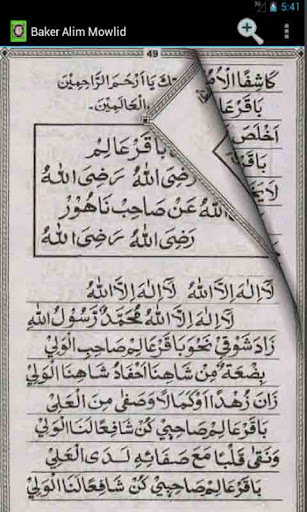 5:41
Baker Alim Mowlid
49
كَاشِفًا
تِكَ يَآ اَرْحَمَ الرَّاحِمِيْنَ
بَاقِرْ عَا
الْعَالَمِيْنَ.
بَاقِرْ عَالِمْ
رَضِيَ اللهُ رَضِيَ اللهُ
اللهُ عَنْ صَاحِبْ نَاهُوْرْ
رَضِيَ اللهُ رَضِيَ اللهُ
لَآ اِلٰهَ اِلَّا اللهُ لَآ اِلٰهَ اِلَّا اللهُ
لَآ اِلٰهَ اِلَّا اللهُ مُحَمَّدٌ رَّسُوْلُ اللهِ
زَادَ شَوْقِيْ نَحْوَ بَاقِرْ عَالِمْ صَاحِبِ الْوَلِيْ
بِضْعَةٌ مِنْ شَاهِنَا اَحْفَادُ شَاهِنَا الْوَلِيْ
زَانَ زُهْدًا اَوْ كَمَالًا وَصَفٰى مِنَ الْعَلِيْ
بَاقِرْ عَالِمْ صَاحِبِيْ كُنْ شَافِعًا لَنَا الْوَلِيْ
وَنَقٰى قَلْبًا مَعَ صَفَائِهِ لَدَى الْعَلِيْ
بَاقِرْ عَالِمْ صَاحِبِيْ كُنْ شَافِعًا لَنَا الْوَلِيْ